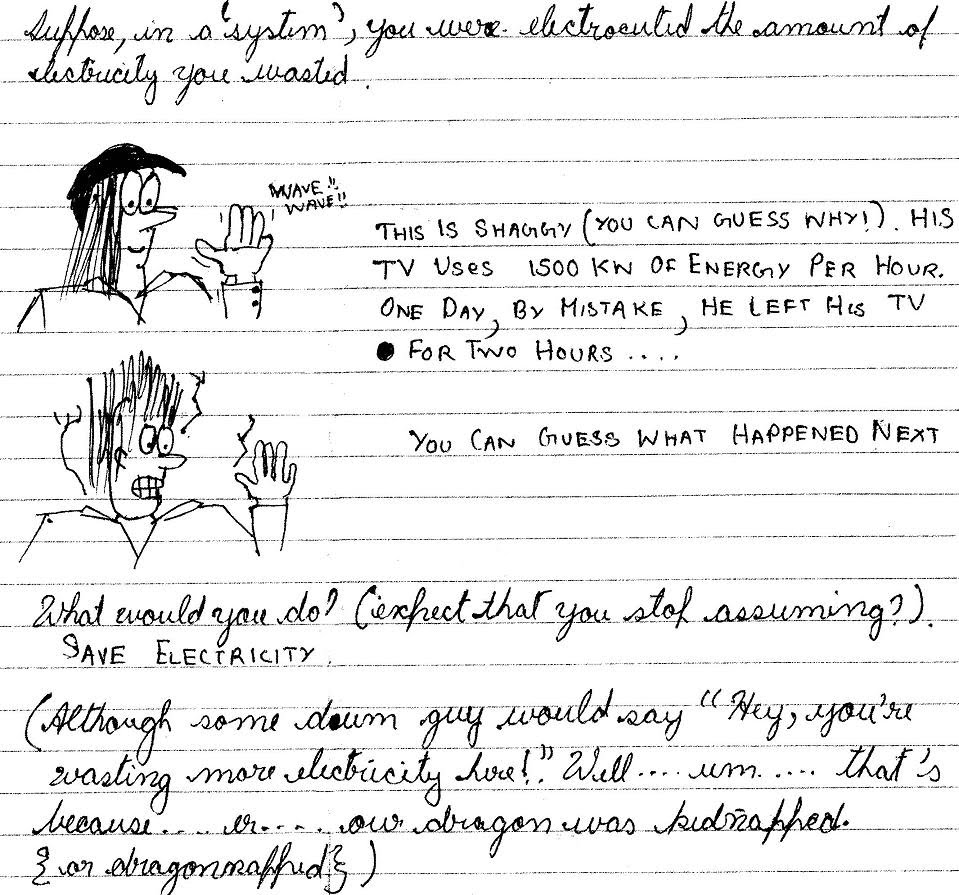 Suppose, in a 'system', you were electrocuted the amount of
electricity you wasted.
WAVE!!
WAVE!!
THIS IS SHAGGY (YOU CAN GUESS WHY!). HIS
TV USES 1500 KW OF ENERGY PER HOUR.
ONE DAY, BY MISTAKE, HE LEFT HIS TV
FOR TWO HOURS ....
YOU CAN GUESS WHAT HAPPENED NEXT
What would you do? (expect that you stop assuming?).
SAVE ELECTRICITY.
(Although some dum guy would say "Hey, you're
wasting more electricity here!". Well .... um .... that's
because .... er .... our dragon was kidnapped.
{or dragonnapped})